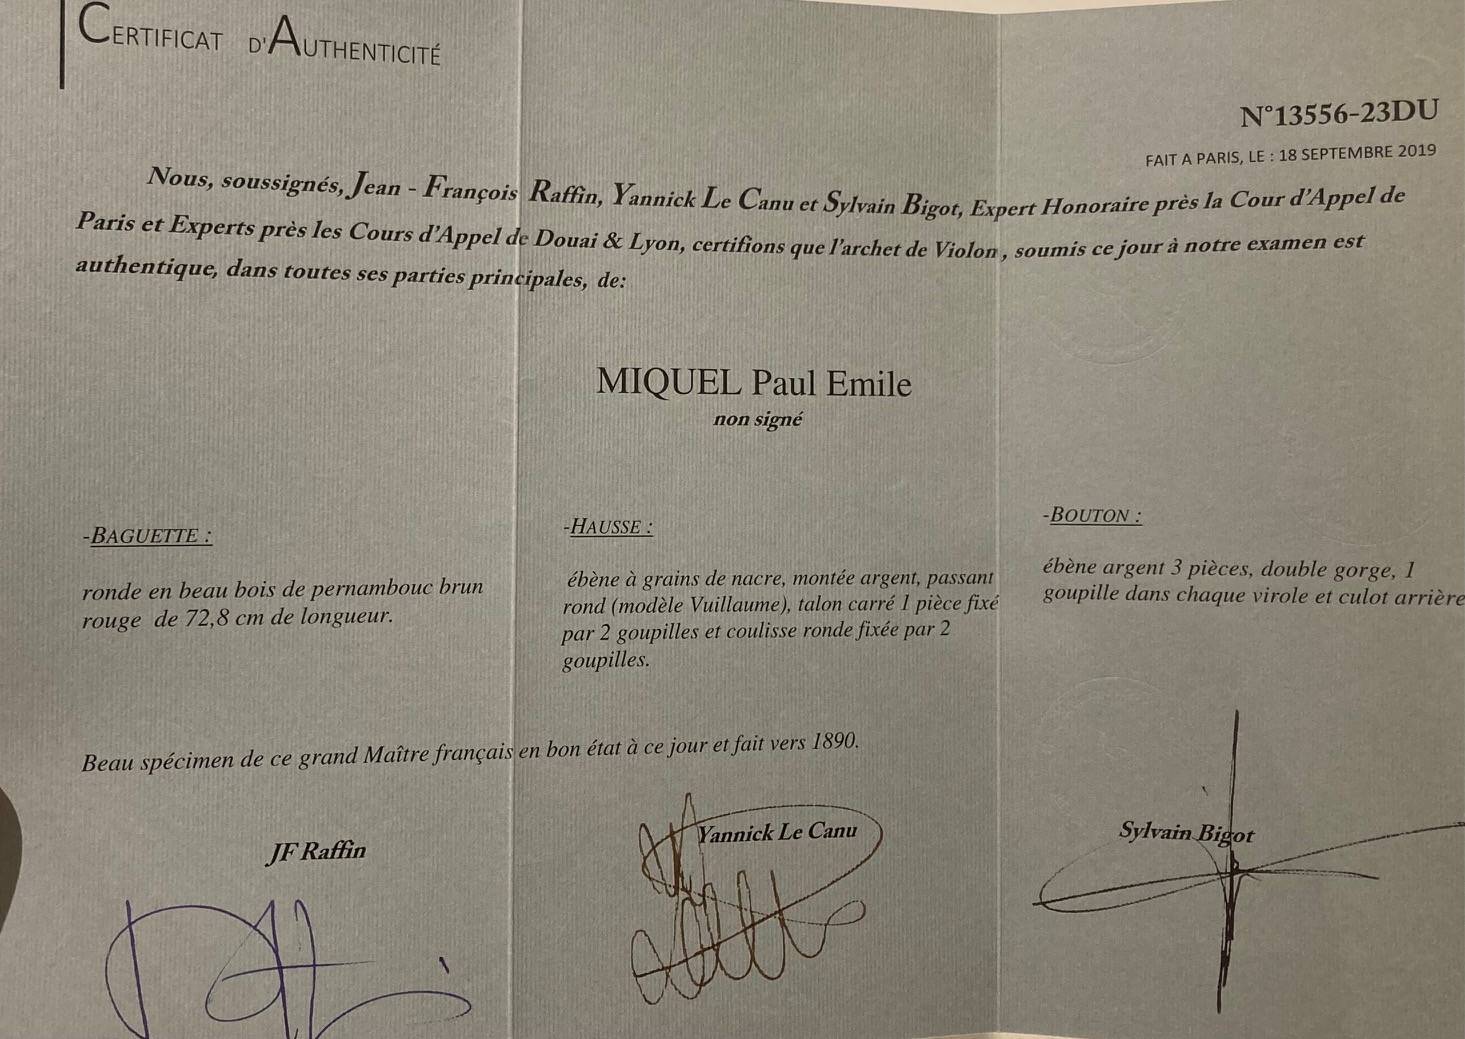 CERTIFICAT D'AUTHENTICITÉ
N°13556-23DU
FAIT A PARIS, LE : 18 SEPTEMBRE 2019
Nous, soussignés, Jean - François Raffin, Yannick Le Canu et Sylvain Bigot, Expert Honoraire près la Cour d'Appel de
Paris et Experts près les Cours d'Appel de Douai & Lyon, certifions que l'archet de Violon , soumis ce jour à notre examen est
authentique, dans toutes ses parties principales, de:
MIQUEL Paul Emile
non signé
-BAGUETTE :
ronde en beau bois de pernambouc brun
rouge de 72,8 cm de longueur.
-HAUSSE :
ébène à grains de nacre, montée argent, passant
rond (modèle Vuillaume), talon carré 1 pièce fixé
par 2 goupilles et coulisse ronde fixée par 2
goupilles.
-BOUTON :
ébène argent 3 pièces, double gorge, 1
goupille dans chaque virole et culot arrière
Beau spécimen de ce grand Maître français en bon état à ce jour et fait vers 1890.
JF Raffin
Yannick Le Canu
Sylvain Bigot